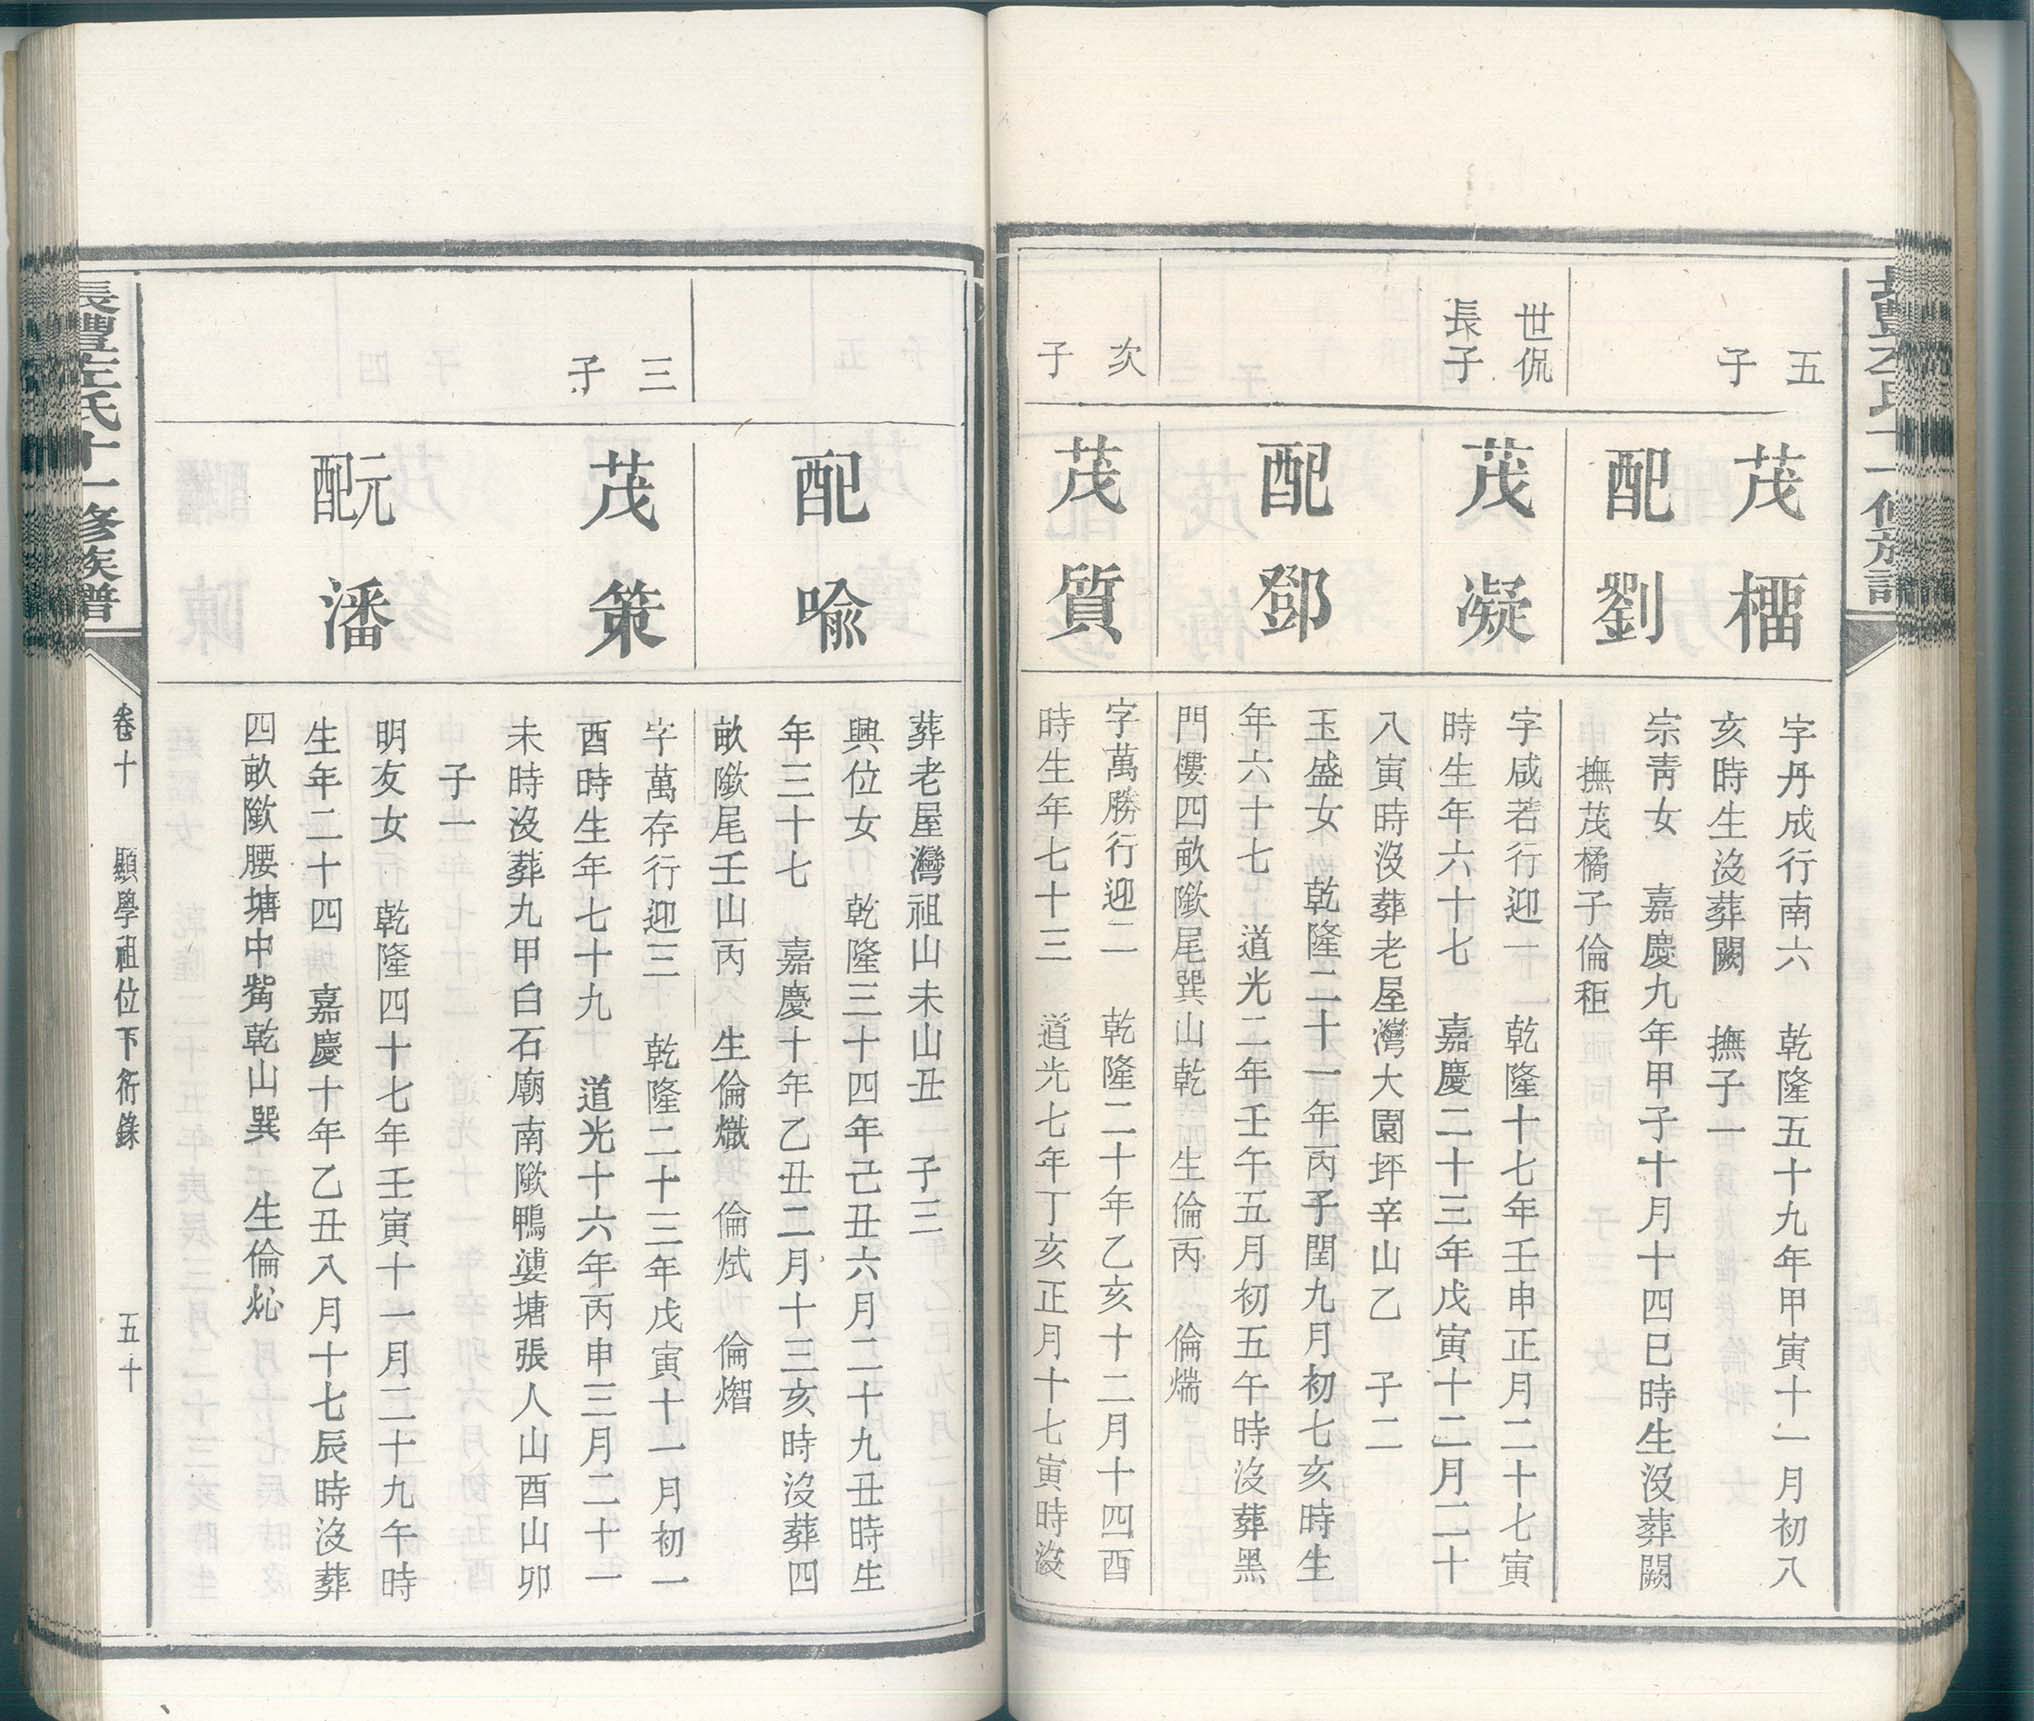 五
子
茂櫺
字丹成行南六　乾隆五十九年甲寅十一月初八
亥時生沒葬闕　撫子一
配劉
宗靑女　嘉慶九年甲子十月十四巳時生沒葬闕
撫茂橘子倫秬
世侃
長子
茂凝
字咸若行迎一　乾隆十七年壬申正月二十七寅
時生年六十七　嘉慶二十三年戊寅十二月二十
八寅時沒葬老屋灣大園坪辛山乙　子二
配鄧
玉盛女　乾隆二十一年丙子閏九月初七亥時生
年六十七　道光二年壬午五月初五午時沒葬黑
門㙡四畝歘尾巽山乾　生倫丙　倫煓
次
子
茂質
字萬勝行迎二　乾隆二十年乙亥十二月十四酉
時生年七十三　道光七年丁亥正月十七寅時沒
葬老屋灣祖山未山丑　子三
配喩
興位女　乾隆三十四年己丑六月二十九丑時生
年三十七　嘉慶十年乙丑二月十三亥時沒葬四
畝歘尾壬山丙　生倫熾　倫烒　倫熠
三
子
茂策
字萬存行迎三　乾隆二十三年戊寅十一月初一
酉時生年七十九　道光十六年丙申三月二十一
未時沒葬九甲白石廟南歘鴨婆塘張人山酉山卯
子一
元配潘
明友女　乾隆四十七年壬寅十一月二十九午時
生年二十四　嘉慶十年乙丑八月十七辰時沒葬
四畝歘腰塘中觜乾山巽　生倫炂
長豐左氏十一修族譜
卷十　顯學祖位下衍錄　五十